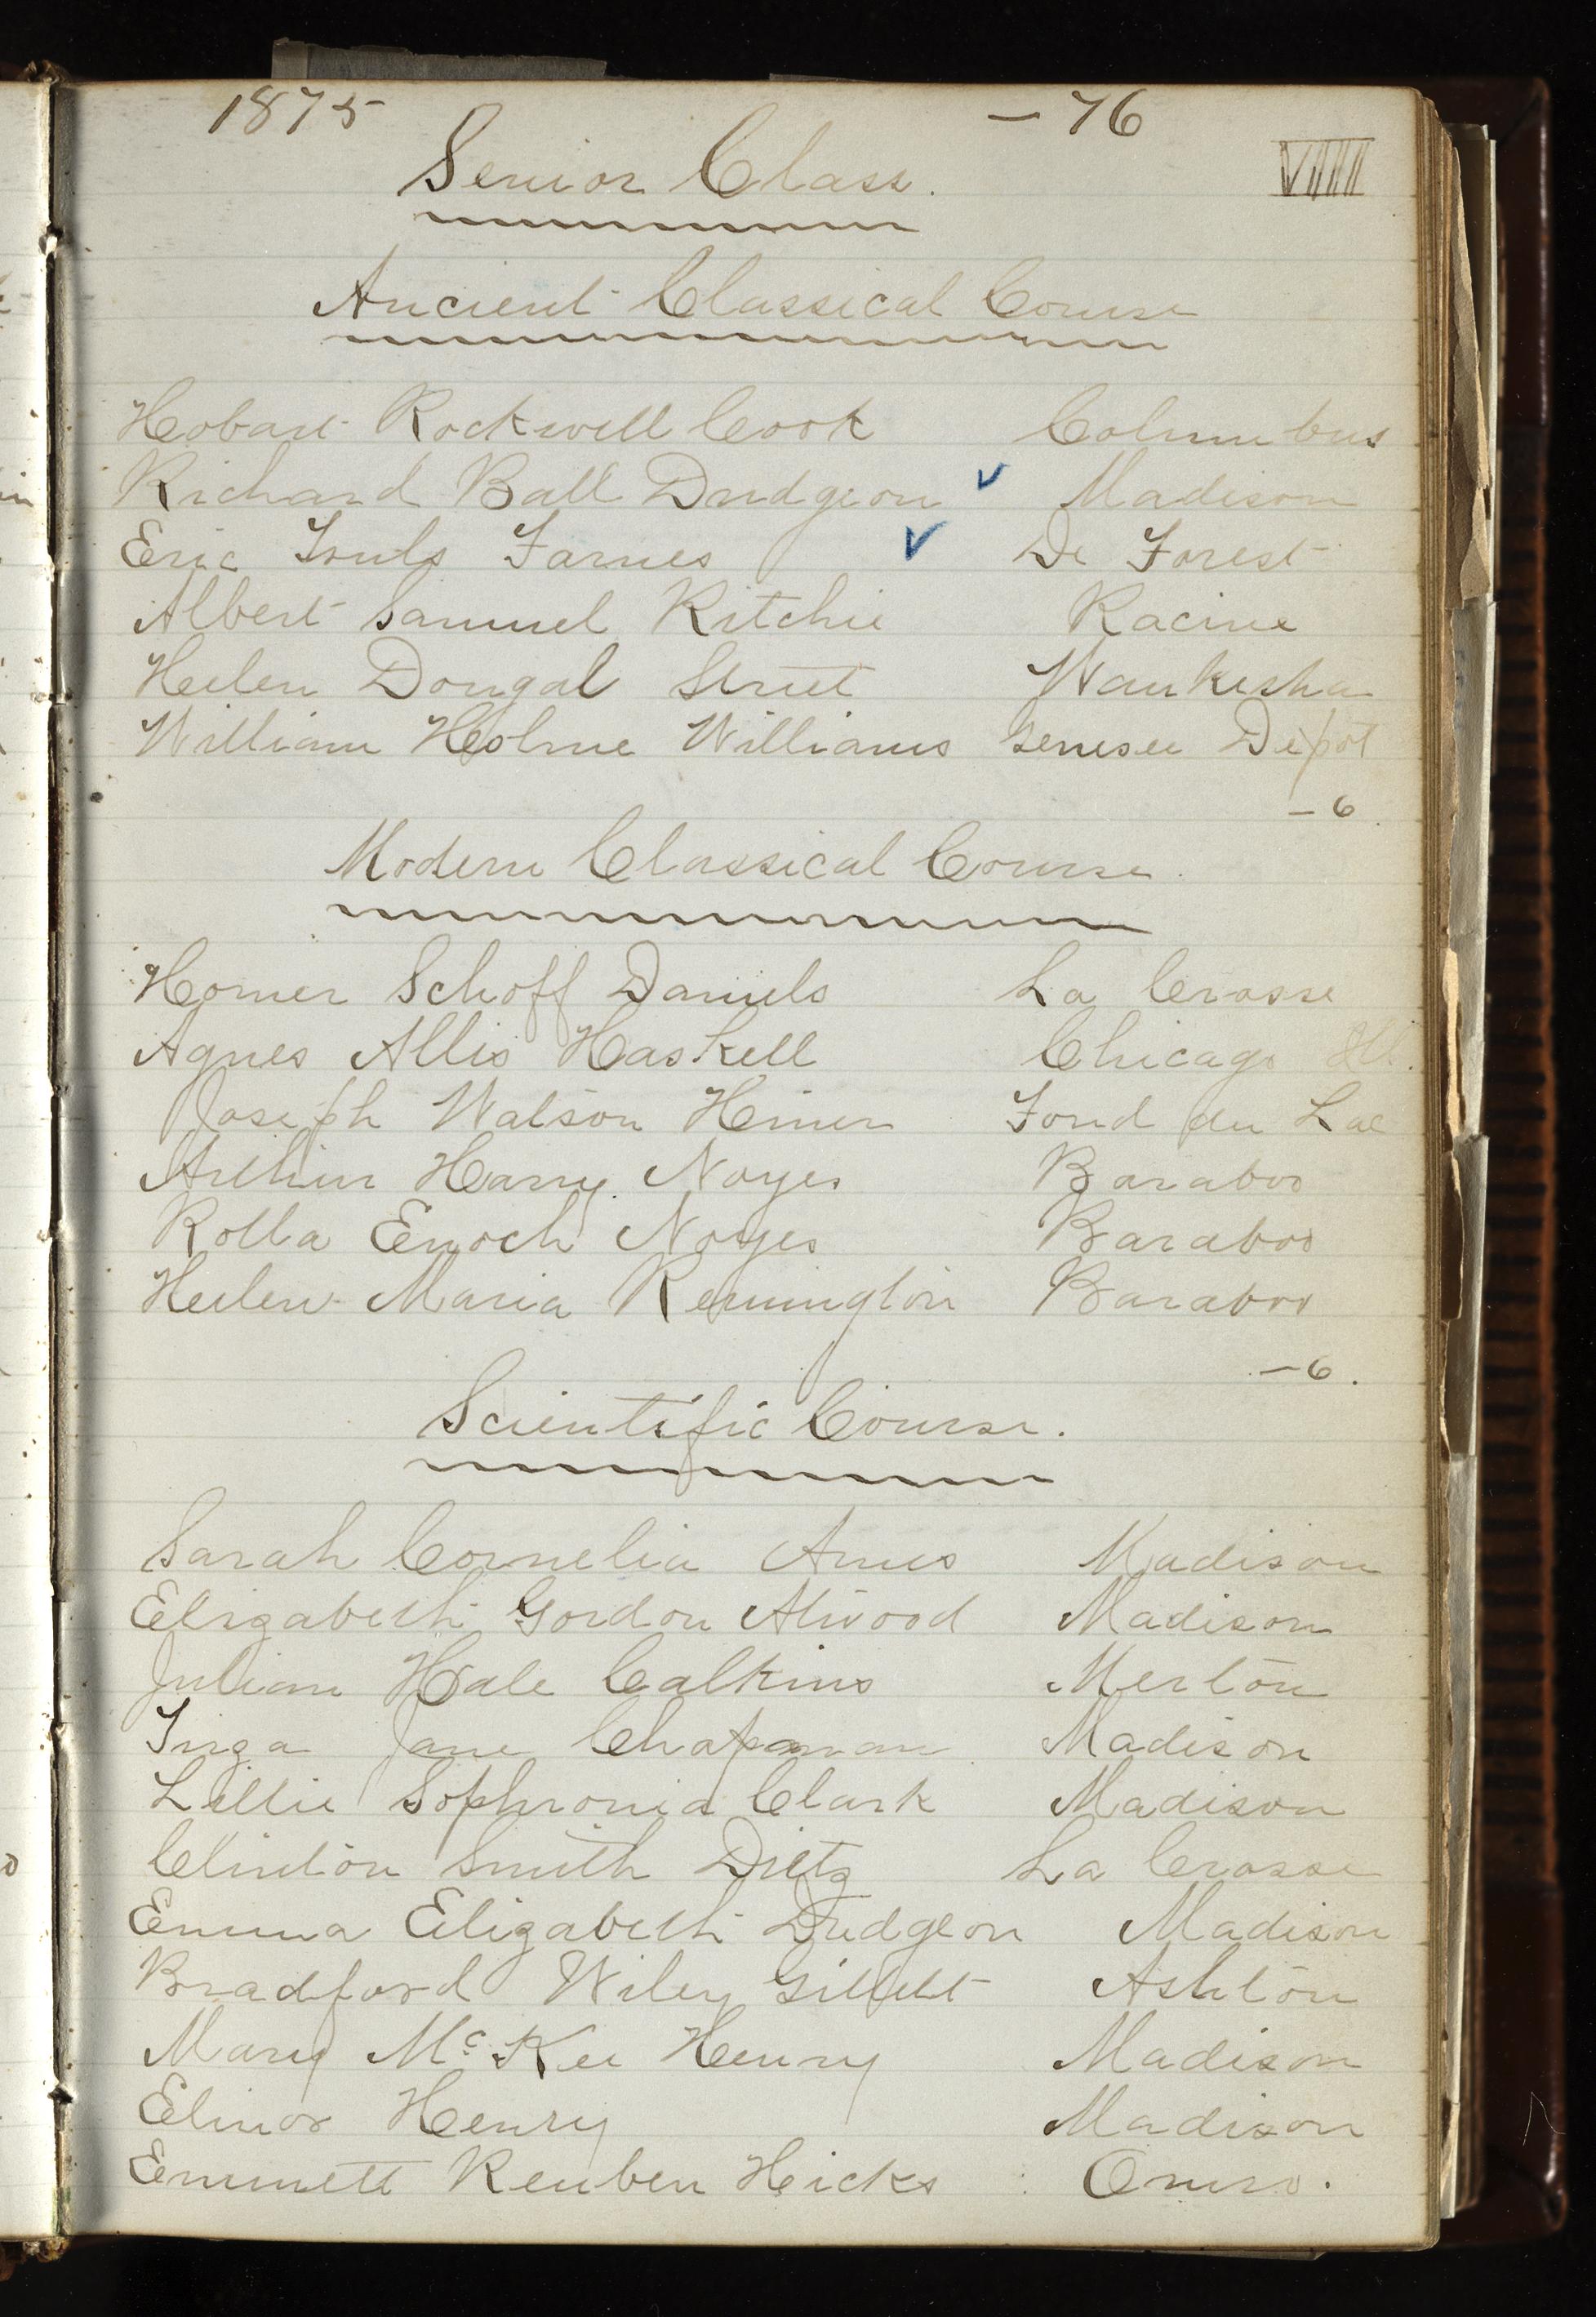 1875 — 76
Senior Class.
VIIII
Ancient Classical Course
Hobart Rockwell Cook Columbus
Richard Ball Dudgeon ✓ Madison
Eric Farnes ✓ De Forest
Albert Samuel Ritchie Racine
Helen Dougal Street Waukesha
William Holme Williams Genesee Depot
– 6.
Modern Classical Course.
Homer Schoff Daniels La Crosse
Agnes Allis Haskell Chicago Ill.
Joseph Watson Hiner Fond du Lac
Arthur Harry Noyes Baraboo
Rolla Enoch Noyes Baraboo
Helen Maria Remington Baraboo
– 6.
Scientific Course.
Sarah Cornelia Ames Madison
Elizabeth Gordon Atwood Madison
Julian Hale Calkins Merton
Inga Jane Chapman Madison
Lillie Sophronia Clark Madison
Clinton Smith Dietz La Crosse
Emma Elizabeth Dudgeon Madison
Bradford Wiley Gillett Ashton
Mary McKee Henry Madison
Elinor Henry Madison
Emmett Reuben Hicks Omro.